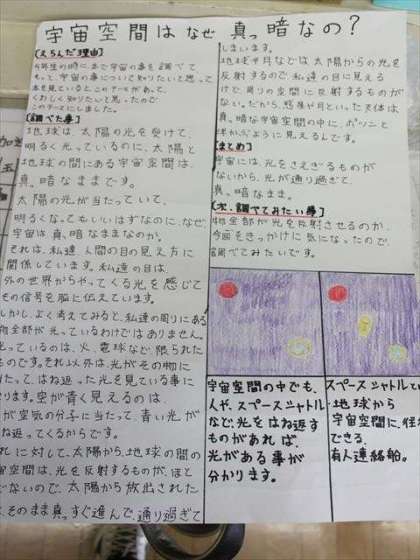 宇宙空間はなぜ真っ暗なの?
(えらんだ理由)
年生の時に、本で宇宙の事を調べて
もって、宇宙の事について知りたいと思って
本を見ているとこのテーマがあって、
くわしく知りたいと思ったので
このテーマにしました。
(調べた事)
地球は、太陽の光を受けて、
明るく光っているのに、太陽と
地球の間にある宇宙空間は、
真っ暗なままです。
太陽の光が当たっていて、
明るくなってもいいはずなのに、なぜ、
宇宙は真っ暗なままなのか。
それは、私達人間の目の見え方に
関係しています。私達の目は、
外の世界からやってくる光を感じて
その信号を脳に伝えています。
しかし、よく考えてみると、私達の周りにある
物全部が光っているわけではありません。
光っているのは、火、電球など限られた
ものです。それ以外は、光がその物に
当たって、はね返った光を見ている事に
なります。空が青く見えるのは、
が空気の分子に当たって、青い光が
ね返ってくるからです。
れに対して、太陽から地球の間の
宙空間は、光を反射するものが、ほと
どないので、太陽から放出された
、そのまま真っすぐ進んで、通り過ぎて
しまいます。
地球や月などでは太陽からの光を
反射するので、私達の目に見える
けど、周りの空間に反射するものが
ない。だから、惑星や月といった天体は
真っ暗な宇宙空間の中で、ポツンと
浮かぶように見えるんです。
(まとめ)
宇宙には、光をさえぎるものが
ないから、光が通り過ぎて、
真っ暗なまま。
(次、調べてみたい事)
物全部が光を反射させるのか、
今回をきっかけに気になったので、
調べてみたいです。
宇宙空間の中でも、
人や、スペースシャトル
など、光をはね返す
ものがあれば、
光がある事が
分かります。
スペースシャトルとは
・地球から
宇宙空間に、往
できる、
有人連絡船。